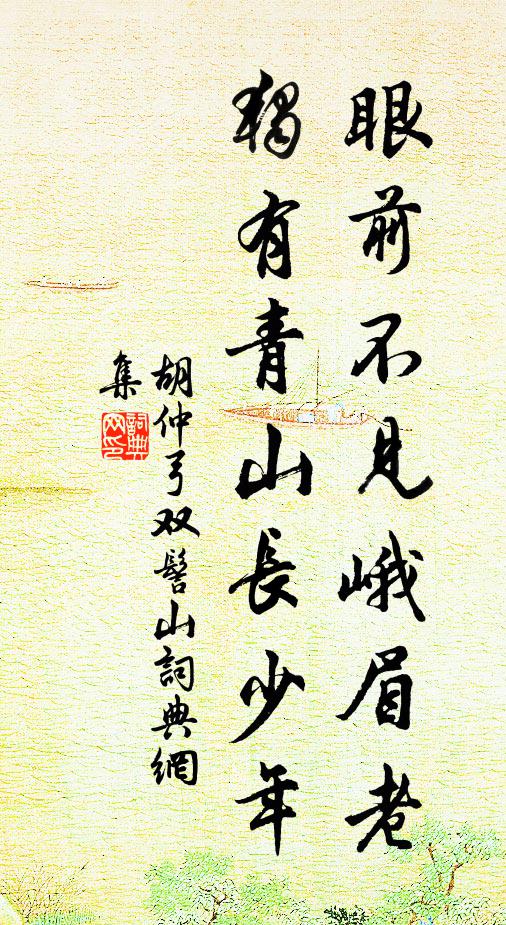 眼前不見峨眉老
獨有青山長少年
胡仲弓双髻山詞典網
集
詞典網印